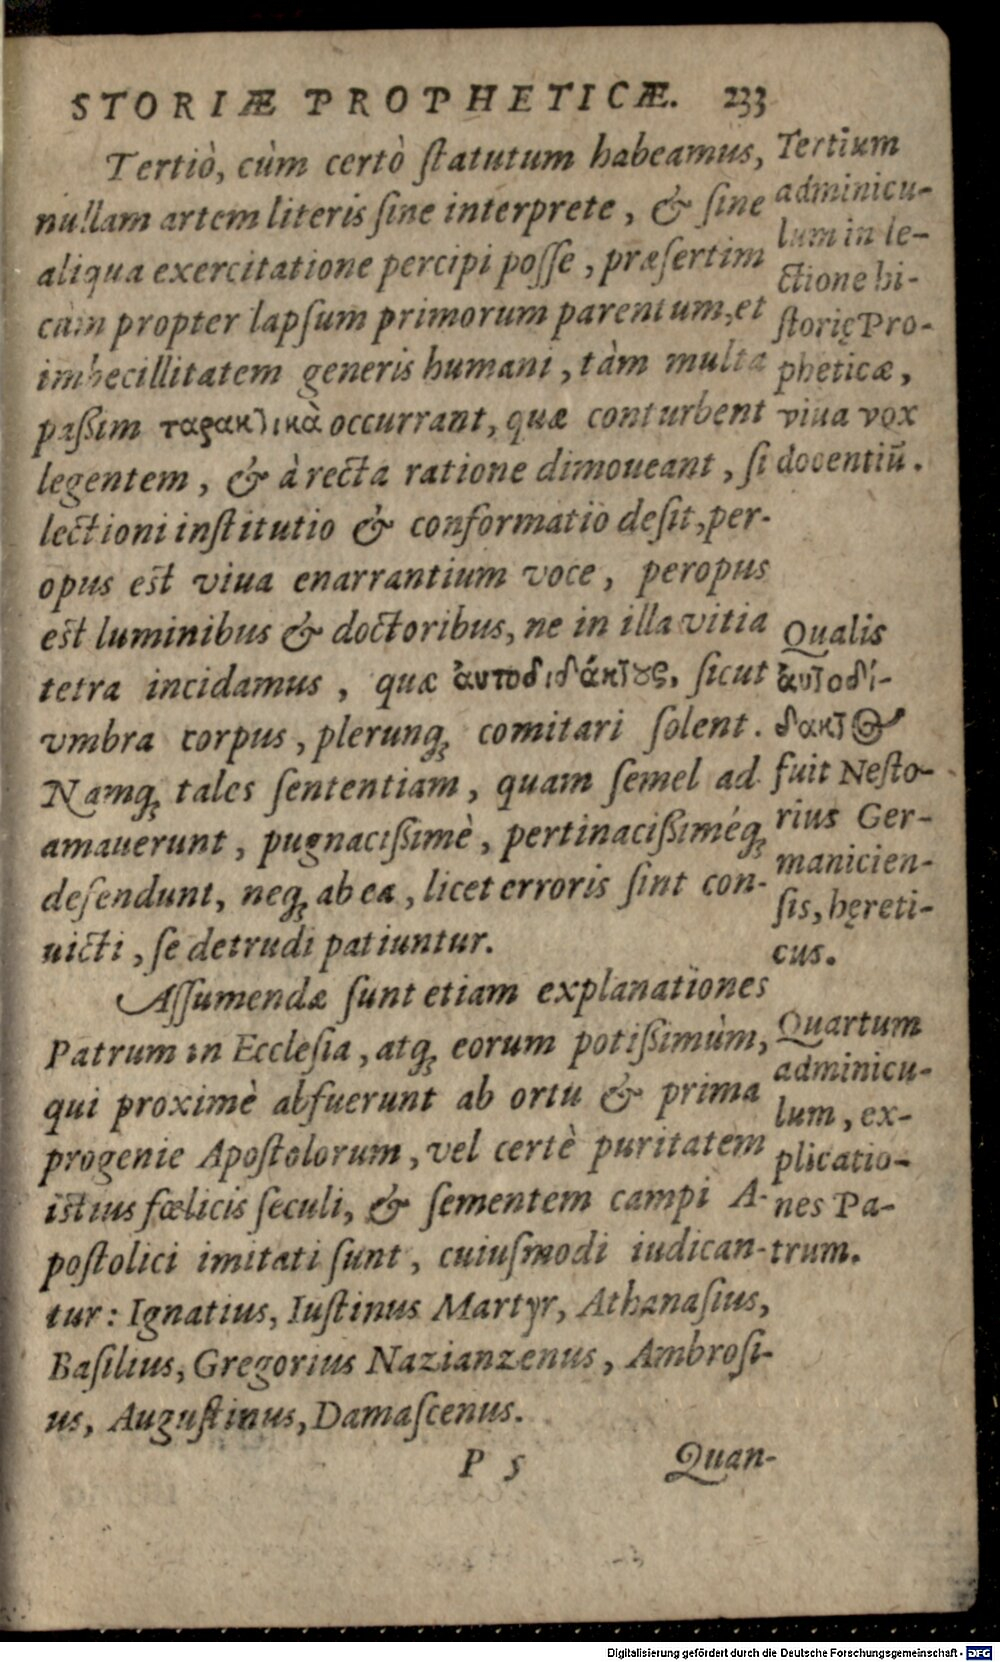 STORIÆ PROPHETICÆ. 233
Tertiò, cùm certò ſtatutum habeamus,
nullam artem literis ſine interprete, & ſine
aliqua exercitatione percipi poſſe, præſertim
cùm propter lapſum primorum parentum, et
imbecillitatem generis humani, tàm multa
paßim ταρακτικὰ occurrant, quæ conturbent
legentem, & à recta ratione dimoueant, ſi
lectioni inſtitutio & conformatio deſit, per-
opus eſt viua enarrantium voce, peropus
eſt luminibus & doctoribus, ne in illa vitia
tetra incidamus, quæ ἀυτοδιδάκτους, ſicut
vmbra corpus, plerunq; comitari ſolent.
Namq; tales ſententiam, quam ſemel ad
amauerunt, pugnacißimè, pertinacißiméq;
defendunt, neq; ab ea, licet erroris ſint con-
uicti, ſe detrudi patiuntur.
Aſſumendæ ſunt etiam explanationes
Patrum in Eccleſia, atq; eorum potißimùm,
qui proximè abfuerunt ab ortu & prima
progenie Apoſtolorum, vel certè puritatem
iſtius fœlicis ſeculi, & ſementem campi A-
poſtolici imitati ſunt, cuiuſmodi iudican-
tur: Ignatius, Iuſtinus Martyr, Athanaſius,
Baſilius, Gregorius Nazianzenus, Ambroſi-
us, Auguſtinus, Damaſcenus.
P 5 Quan-
Tertium
adminicu-
lum in le-
ctione hi-
ſtorię Pro-
pheticæ,
viua vox
docentiũ.
Qualis
ἀυτοδί-
δακτος
fuit Neſto-
rius Ger-
manicien-
ſis, hęreti-
cus.
Quartum
adminicu-
lum, ex-
plicatio-
nes Pa-
trum.
Digitalisierung gefördert durch die Deutsche Forschungsgemeinschaft - DFG